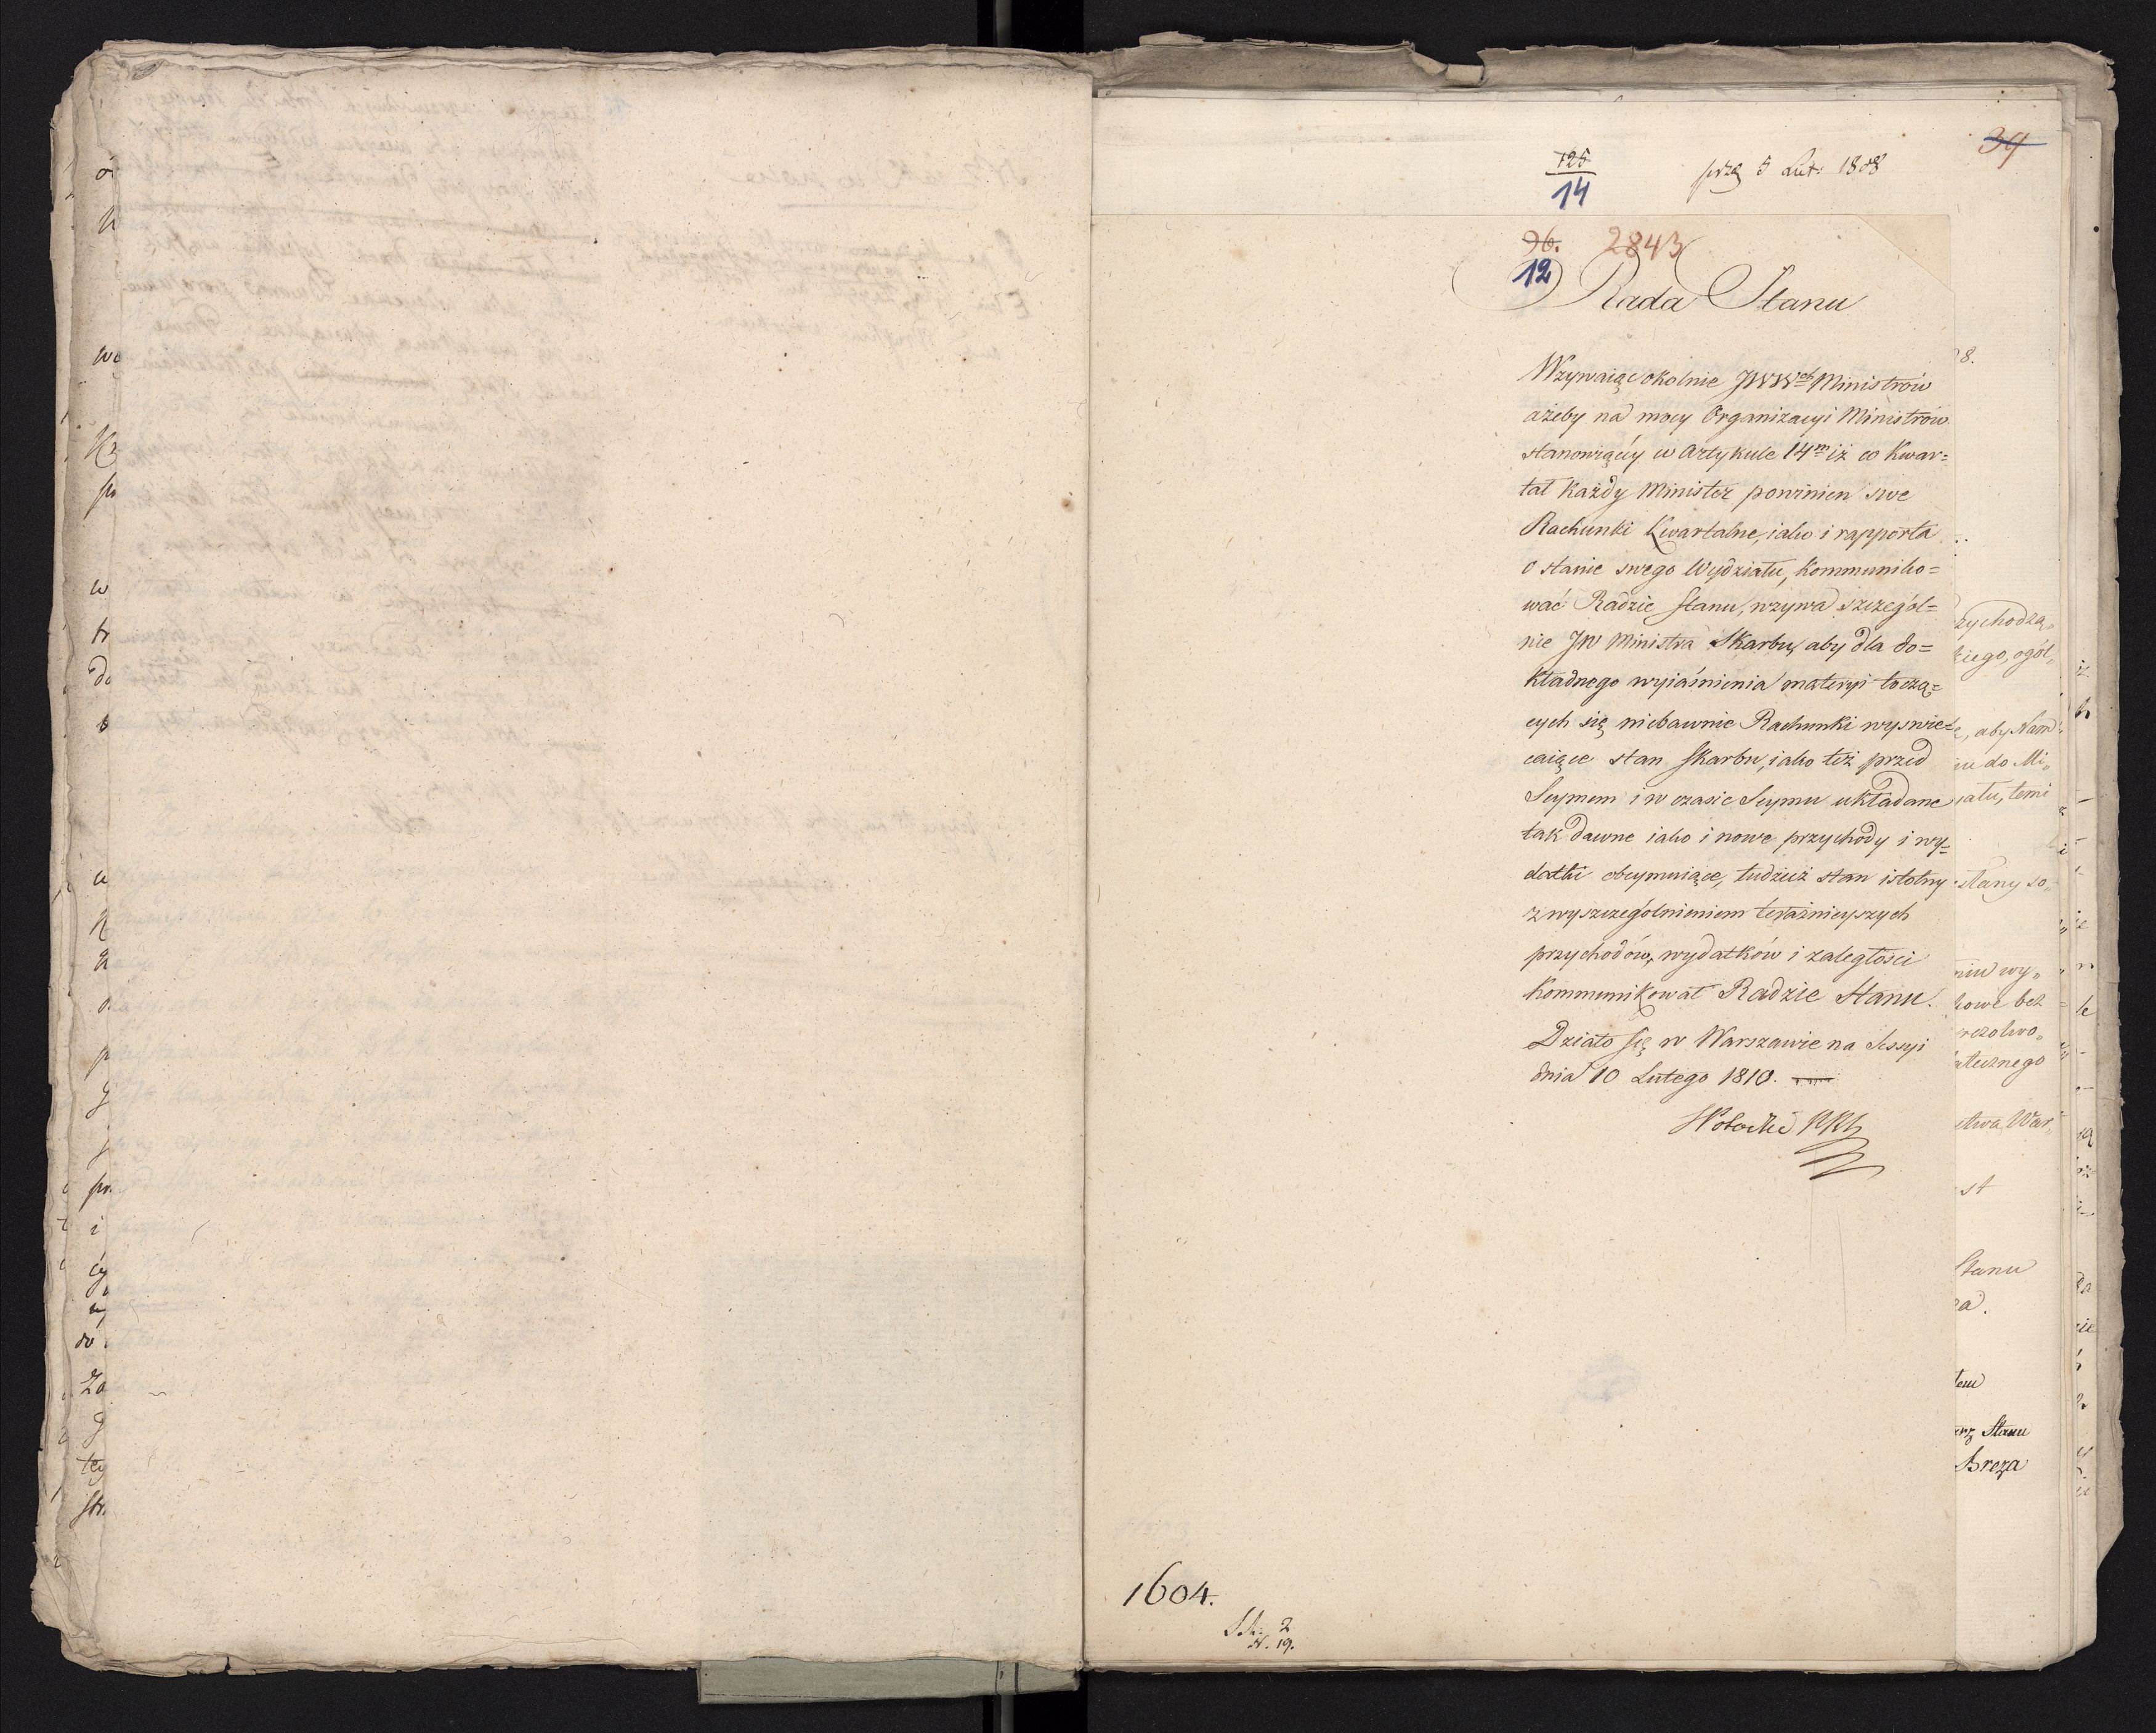 34
125
14
prze 5 Lut: 1808
96. 2843
12
Rada Stanu
Wzywaiąc okolnie JWW^ch Ministrów
ażeby na mocy Organizacyi Ministrów
stanowiącéy w Artykule 14^m iż co Kwar=
tał każdy Minister powinien swe
Rachunki Kwartalne, iako i rapporta
o stanie swego Wydziału, kommuniko=
wać Radzie Stanu, wzywa szczegól=
nie JW Ministra Skarbu, aby dla do=
kładnego wyiaśnienia materyi toczą=
cych się niebawnie Rachunki wyswie=
caiące stan Skarbu, iako też przed
Seymem i w czasie Seymu układane
tak dawne iako i nowe przychody i wy=
datki obeymuiące, tudzież stan istotny
z wyszczególnieniem teraźnieyszych
przychodów, wydatków i zaległości
kommunikował Radzie Stanu.
Działo się w Warszawie na Sessyi
dnia 10 Lutego 1810.
8.
zychodzą„
kiego, ogól„
, aby Nam
do Mi„
iału, temi
stany so„
wy„
kowe bez
rezolwo„
tecznego
stwa War„
st
Stanu
tem
arz Stanu
Breza
1604.
2
N. 19.